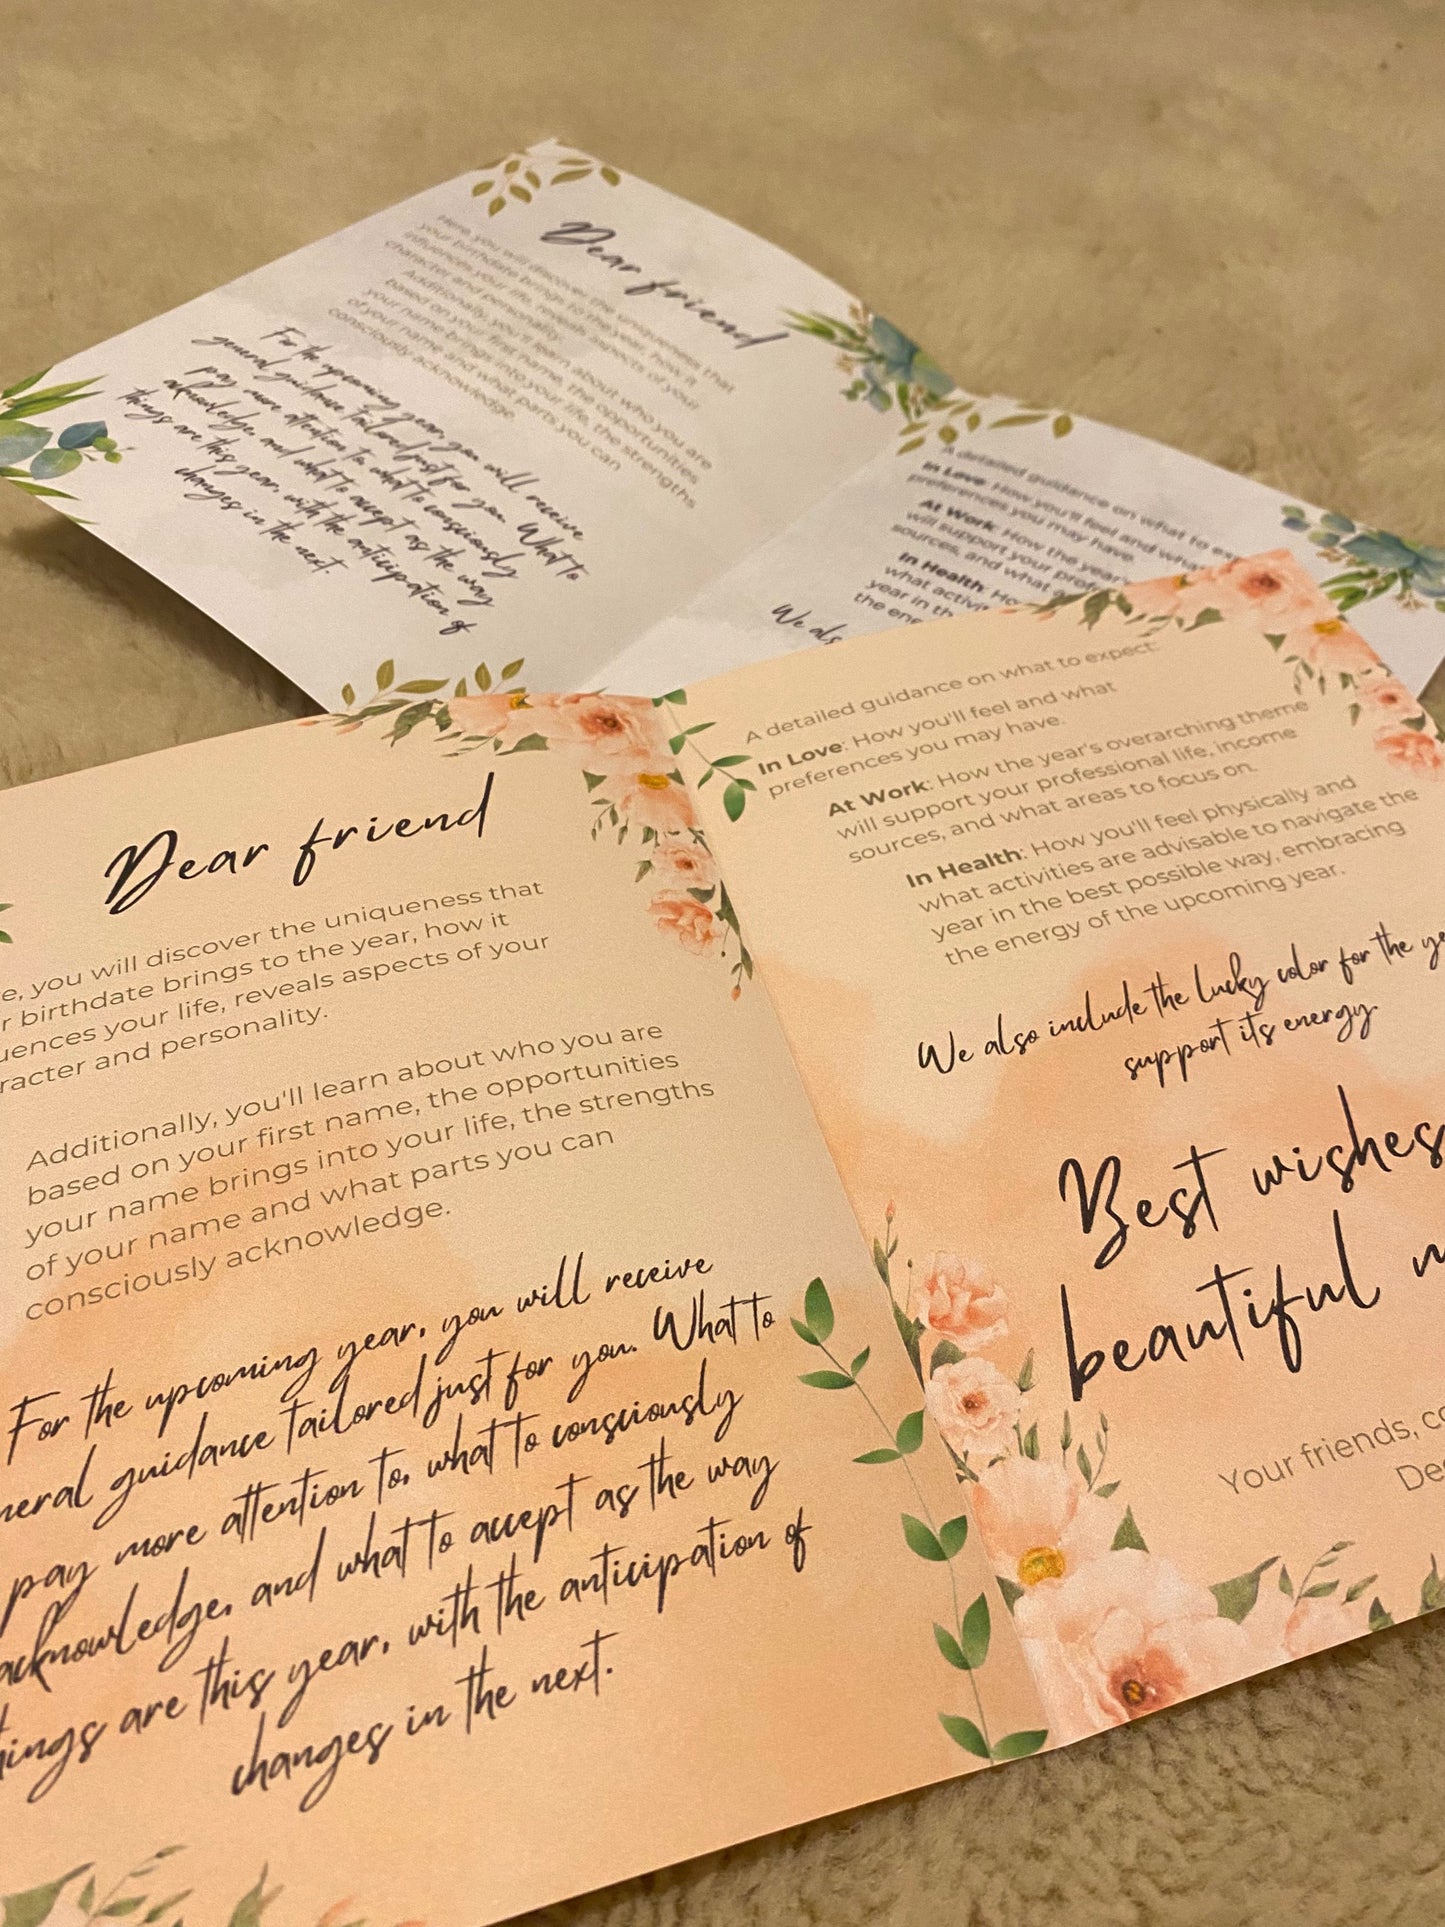 Dear friend
Here, you will discover the uniqueness that
your birthdate brings to the year, how it
influences your life, reveals aspects of your
character and personality.
Additionally, you'll learn about who you are
based on your first name, the opportunities
your name brings into your life, the strengths
of your name and what parts you can
consciously acknowledge.
For the upcoming year, you will receive
general guidance tailored just for you. What to
pay more attention to, what to consciously
acknowledge, and what to accept as the way
things are this year, with the anticipation of
changes in the next.
A detailed guidance on what to
In Love: How you'll feel and
preferences you may have.
At Work: How the year's
will support your
sources, and what
In Health:
what
year in
the
We
Dear friend
you will discover the uniqueness that
birthdate brings to the year, how it
your life, reveals aspects of your
and personality.
Additionally, you'll learn about who you are
based on your first name, the opportunities
your name brings into your life, the strengths
of your name and what parts you can
consciously acknowledge.
For the upcoming year, you will receive
guidance tailored just for you. What to
pay more attention to, what to consciously
acknowledge, and what to accept as the way
are this year, with the anticipation of
changes in the next.
A detailed guidance on what to expect:
In Love: How you'll feel and what
preferences you may have.
At Work: How the year's overarching theme
will support your professional life, income
sources, and what areas to focus on.
In Health: How you'll feel physically and
what activities are advisable to navigate the
year in the best possible way, embracing
the energy of the upcoming year.
We also include the lucky color for the
support its energy.
Best wishes
beautiful
Your friends,